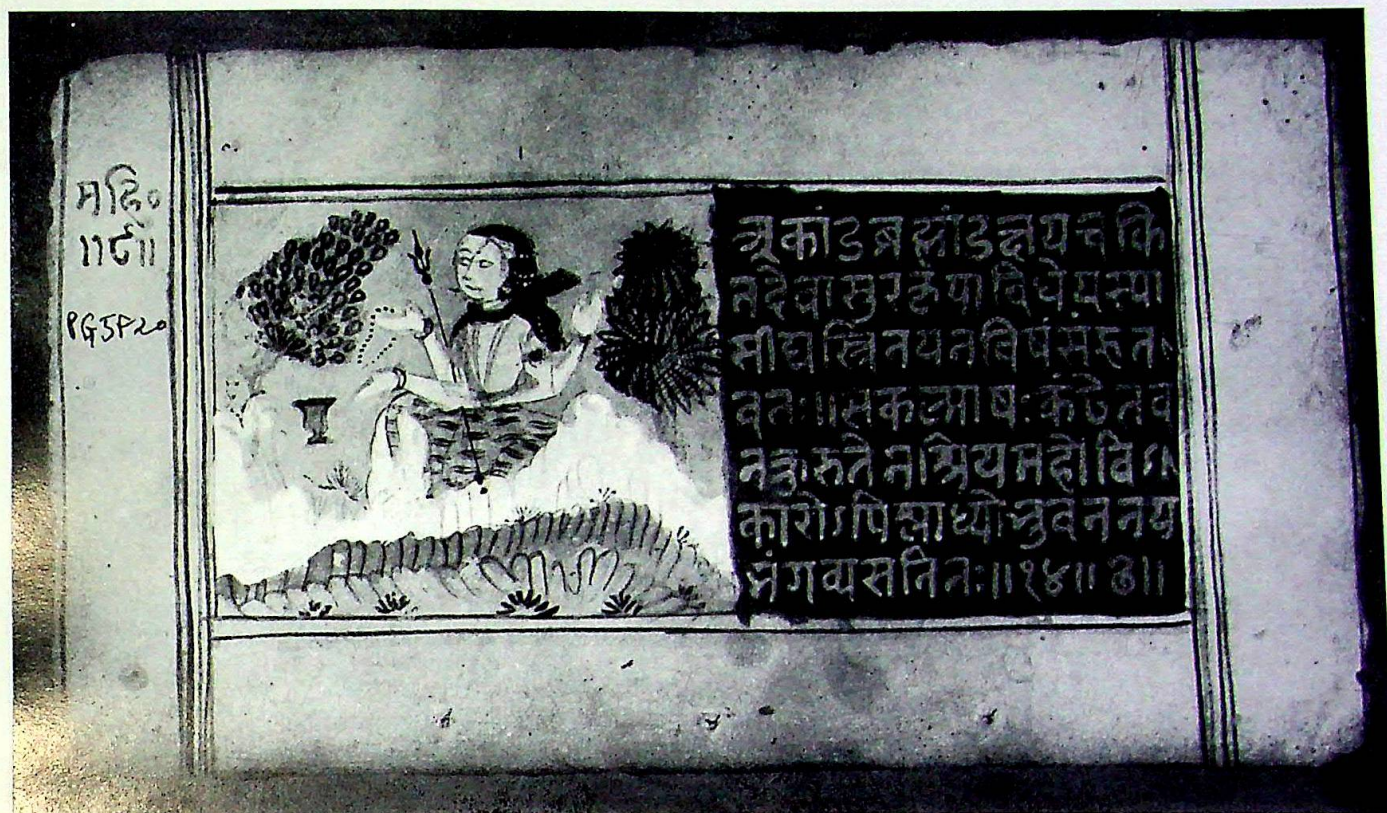 महि॰
॥८॥
PG5P20
अकांडब्रह्मांडक्षयचकि
तदेवासुरकृपाविधेयस्या
सीद्यस्त्रिनयनविषंसंहृत
वतः॥सकल्माषःकंठेतव
नकुरुतेनश्रियमहोवि
कारोऽपिश्लाघ्योभुवनभय
भंगव्यसनिनः॥१४॥ ७॥